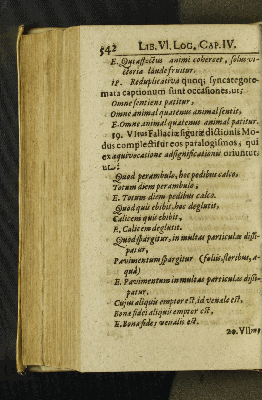 542 LIB. VI. LOG, CAP. IV.
E. Qui affectus animi cohercet, solus vi-
ctoria laude fruitur.
18. Reduplicativa quoq; syncategore-
mata captionum sunt occasiones. ut:
Omne sentiens patitur,
Omne animal quatenus animal sentit,
E. Omne animal quatenus animal patitur.
19. VItus Fallaciæ figuræ dictionis Mo-
dus complectitur eos paralogismos, qui
ex æquivocatione adsignificationis oriuntur,
ut:
Quod perambulo, hoc pedibus calco,
Totum diem perambulo,
E. Totum diem pedibus calco.
Quod quis ebibit, hoc deglutit,
Calicem quis ebibit,
E. Calicem deglutit.
Quod spargitur, in multas particulas dissi-
patur,
Pavimentum spargitur (foliis, floribus, a-
quâ)
E. Pavimentum in multas particulas dissi-
patur.
Cujus aliquis emptor est, id venale est,
Bonæ fidei aliquis emptor est,
E. Bona fides venalis est.
20. VIImus